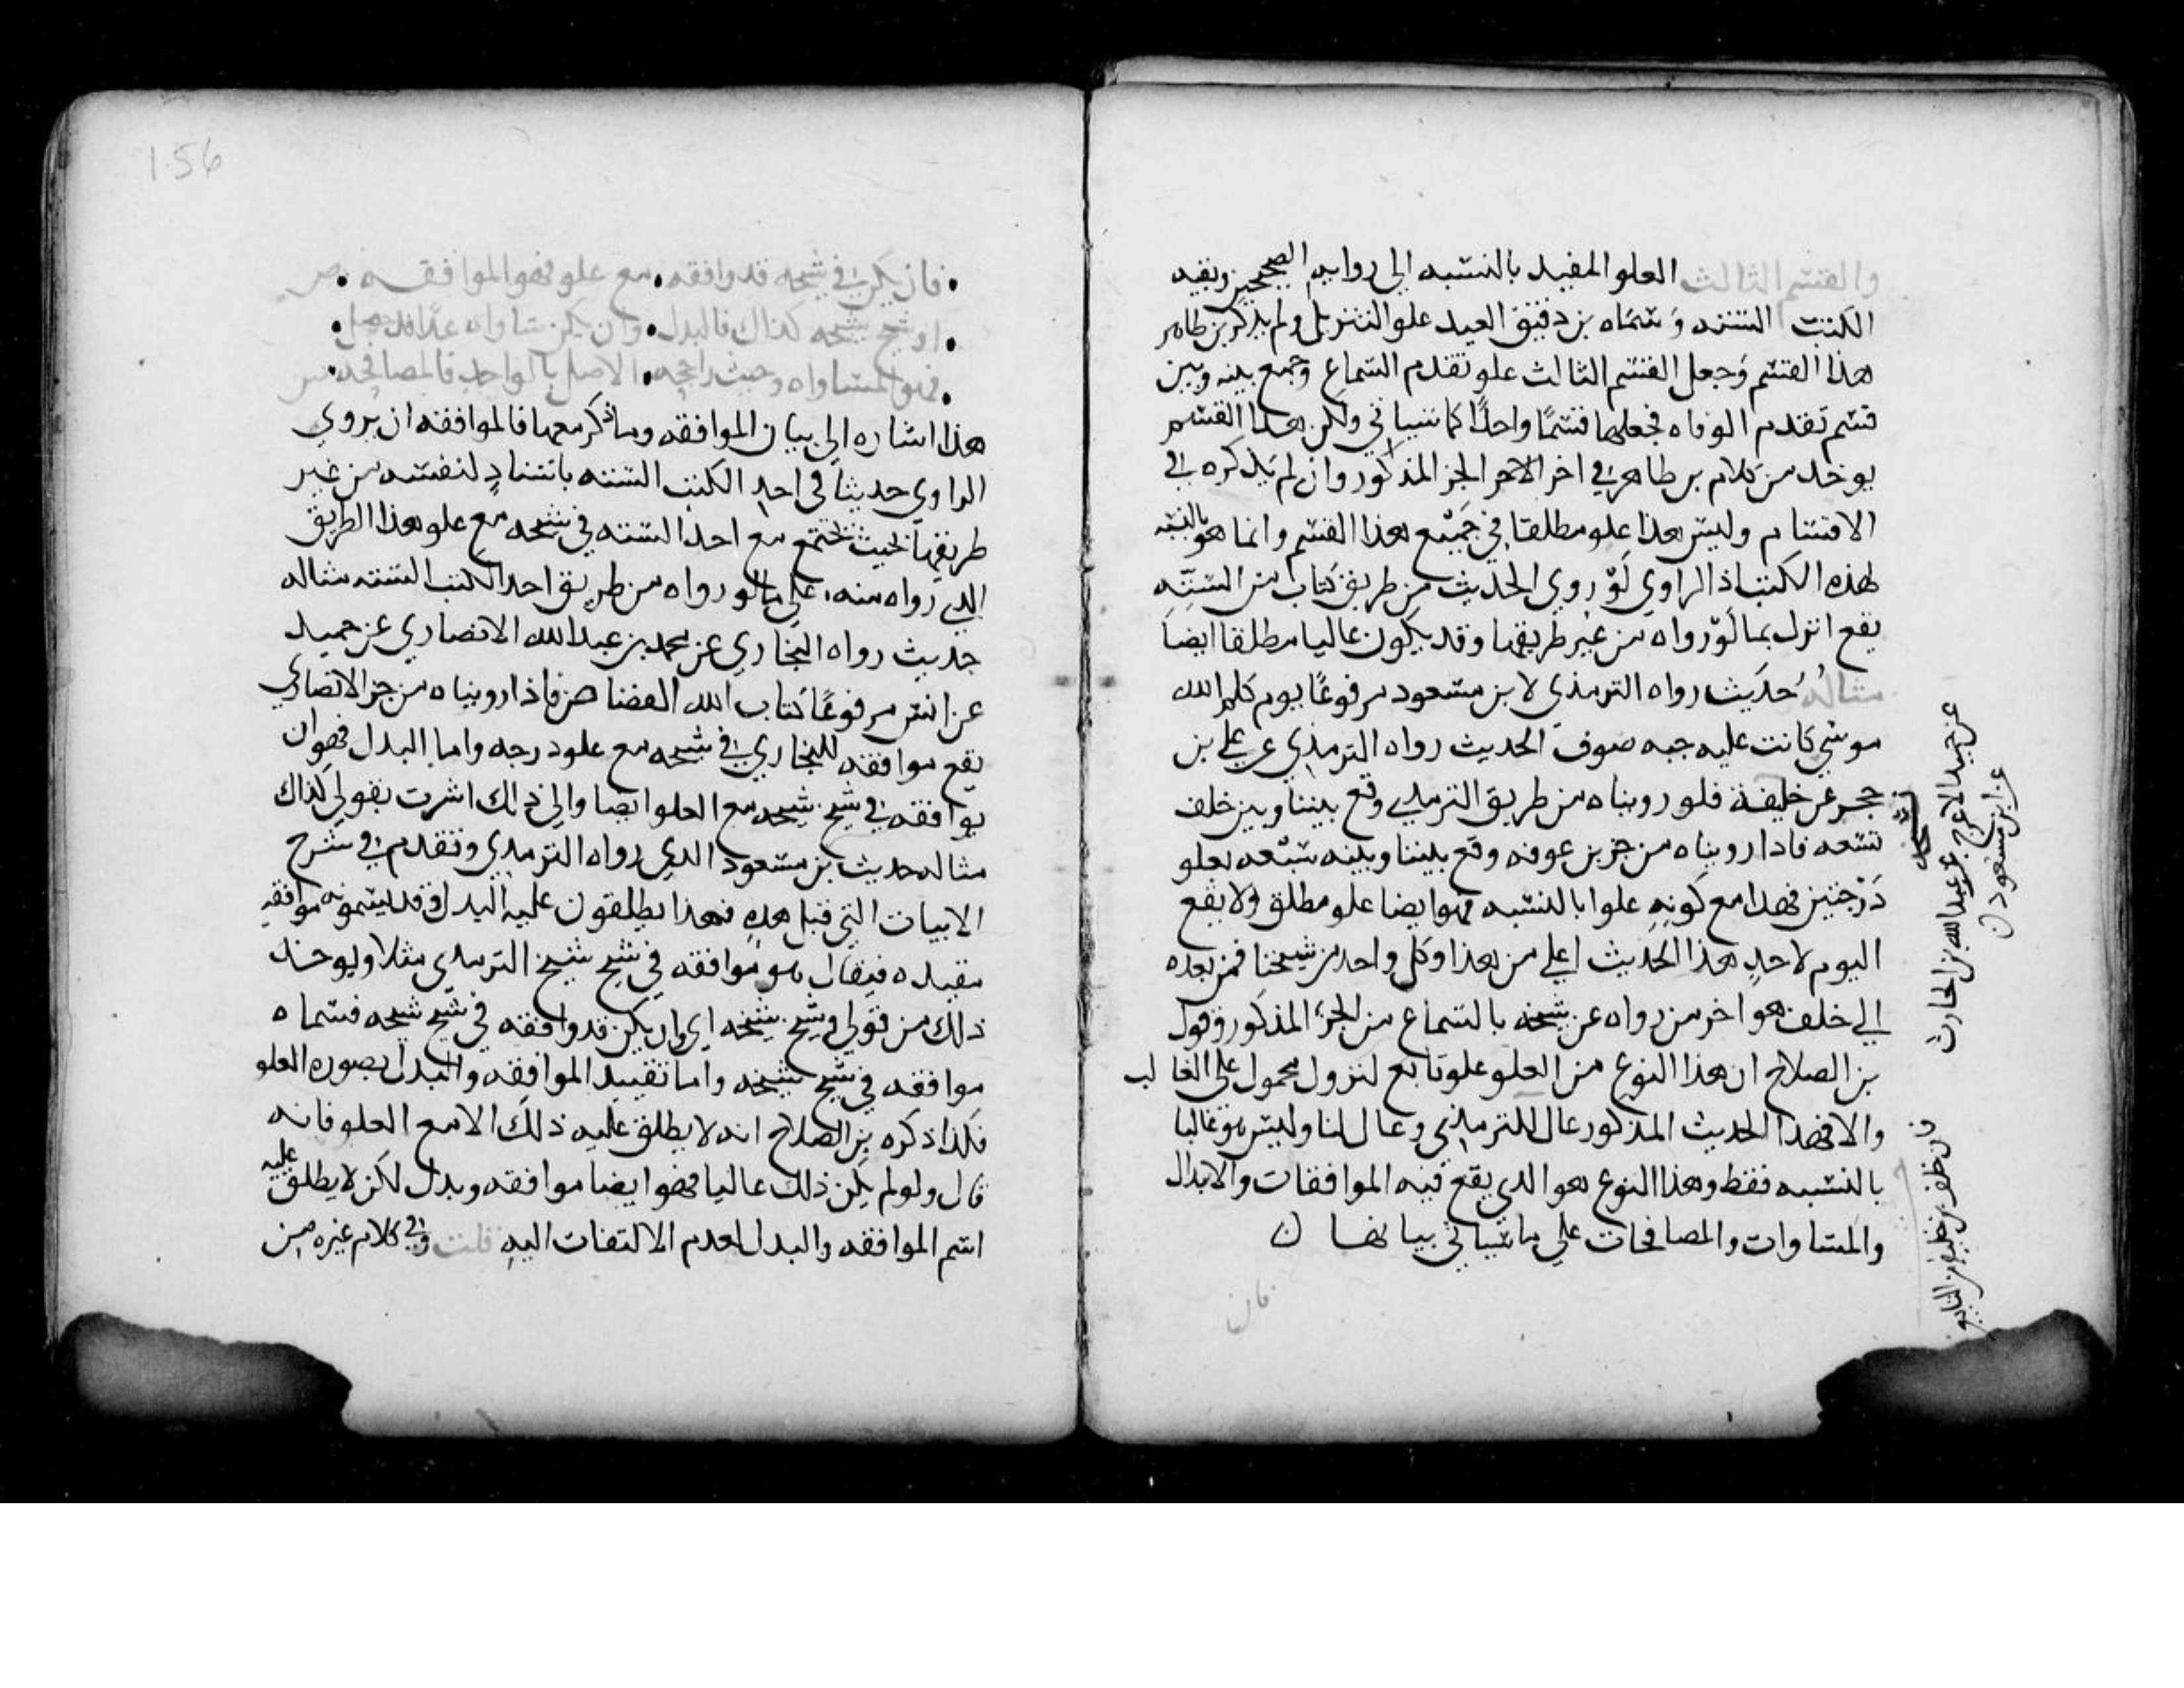 والقسم الثالث العلو المقيد بالنسبه الى روايه الصحيحين وبقيه
الكتب السته وسماه بن دقيق العيد علو التنزيل ولم يذكر بن طاهر
هذا القسم وجعل القسم الثالث علو تقدم السماع وجمع بينه وبين
قسم تقدم الوفاه فجعلهما قسمًا واحدًا كما سياتي ولكن هذا القسم
يوخذ من كلام بن طاهر في اخر الجز المذكور وان لم يذكره في
الاقسام وليس هذا علو مطلقا في جميع هذا القسم وانما هو بالنسبه
لهذه الكتب اذ الراوي لو روى الحديث من طريق كتاب من السته
يقع انزل مما لو رواه من غير طريقها وقد يكون عاليا مطلقا ايضا
مثاله حديث رواه الترمذي لابن مسعود مرفوعًا يوم كلم الله
موسى كانت عليه جبه صوف الحديث رواه الترمذي عن علي بن
حجر عن خليفة فلو رويناه من طريق الترمذي وقع بيننا وبين خلف
تسعه فاذا رويناه من جز بن عرفه وقع بيننا وبينه سبعه بعلو
درجتين فهذا مع كونه علوا بالنسبه فهو ايضا علو مطلق ولا يقع
اليوم لاحد هذا الحديث اعلى من هذا وكل واحد من شيخنا فمن بعده
الى خلف هو اخر من رواه عن شيخه بالسماع من الجز المذكور وقول
بن الصلاح ان هذا النوع من العلو علو تابع لنزول محمول على الغالب
والا فهذا الحديث المذكور عال للترمذي وعال لنا وليس هو عاليا
بالنسبه فقط وهذا النوع هو الذي يقع فيه الموافقات والابدال
والمساوات والمصافحات على ما سياتي بيانها ن
فان
عن حميد الاعرج عن عبد الله بن الحارث
عن ابن مسعود ن
1.56
فان يكن في شيخه قد وافقه مع علو فهو الموافقه
او شيخ شيخه كذاك فالبدل وان يكن ساواه عدًا قد حصل
فهو المساواه وحيث راجحه الاصل بالواحد فالمصافحه
هذا اشاره الى بيان الموافقه وما ذكر معها فالموافقه ان يروي
الراوي حديثا في احد الكتب السته باسناد لنفسه من غير
طريقها بحيث يجتمع مع احد السته في شيخه مع علو هذا الطريق
الذي رواه منه على ما لو رواه من طريق احد الكتب السته مثاله
حديث رواه البخاري عن محمد بن عبد الله الانصاري عن حميد
عن انس مرفوعًا كتاب الله القصاص فاذا رويناه من جز الانصاري
يقع موافقه للبخاري في شيخه مع علو درجه واما البدل فهو ان
يوافقه في شيخ شيخه مع العلو ايضا والى ذلك اشرت بقولي كذاك
مثاله حديث بن مسعود الذي رواه الترمذي وتقدم في شرح
الابيات التي قبل هذه فهذا يطلقون عليه البدل وقد يسمونه موافقه
مقيده فيقال هو موافقه في شيخ شيخ الترمذي مثلا ويوخذ
ذلك من قولي او شيخ شيخه اي وان يكن قد وافقه في شيخ شيخه فسماه
موافقه في شيخ شيخه واما تقييد الموافقه والبدل بصوره العلو
فكذا ذكره بن الصلاح انه لا يطلق عليه ذلك الا مع العلو فانه
قال ولو لم يكن ذلك عاليا فهو ايضا موافقه وبدل لكن لا يطلق عليه
اسم الموافقه والبدل لعدم الالتفات اليه قلت وفي كلام غيره من